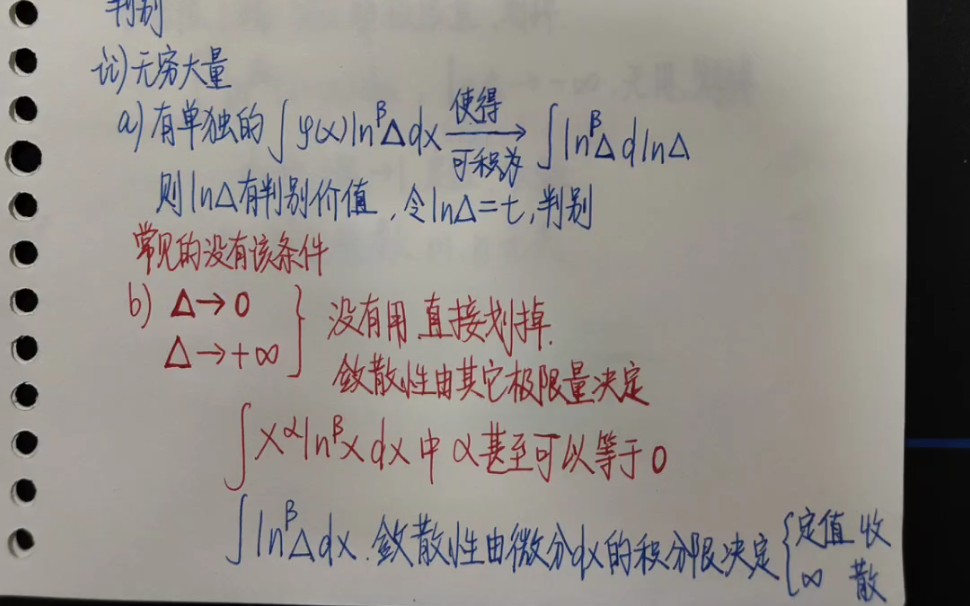 判别
ii)无穷大量
a)有单独的∫φ(x)ln^βΔdx 使得 可积为 → ∫ln^βΔdlnΔ
则lnΔ有判别价值,令lnΔ=t,判别
常见的没有该条件
b) Δ→0
Δ→+∞ } 没有用,直接划掉.
敛散性由其它极限量决定
∫x^αln^βxdx中α甚至可以等于0
∫ln^βΔdx.敛散性由微分dx的积分限决定{定值 收
∞ 散